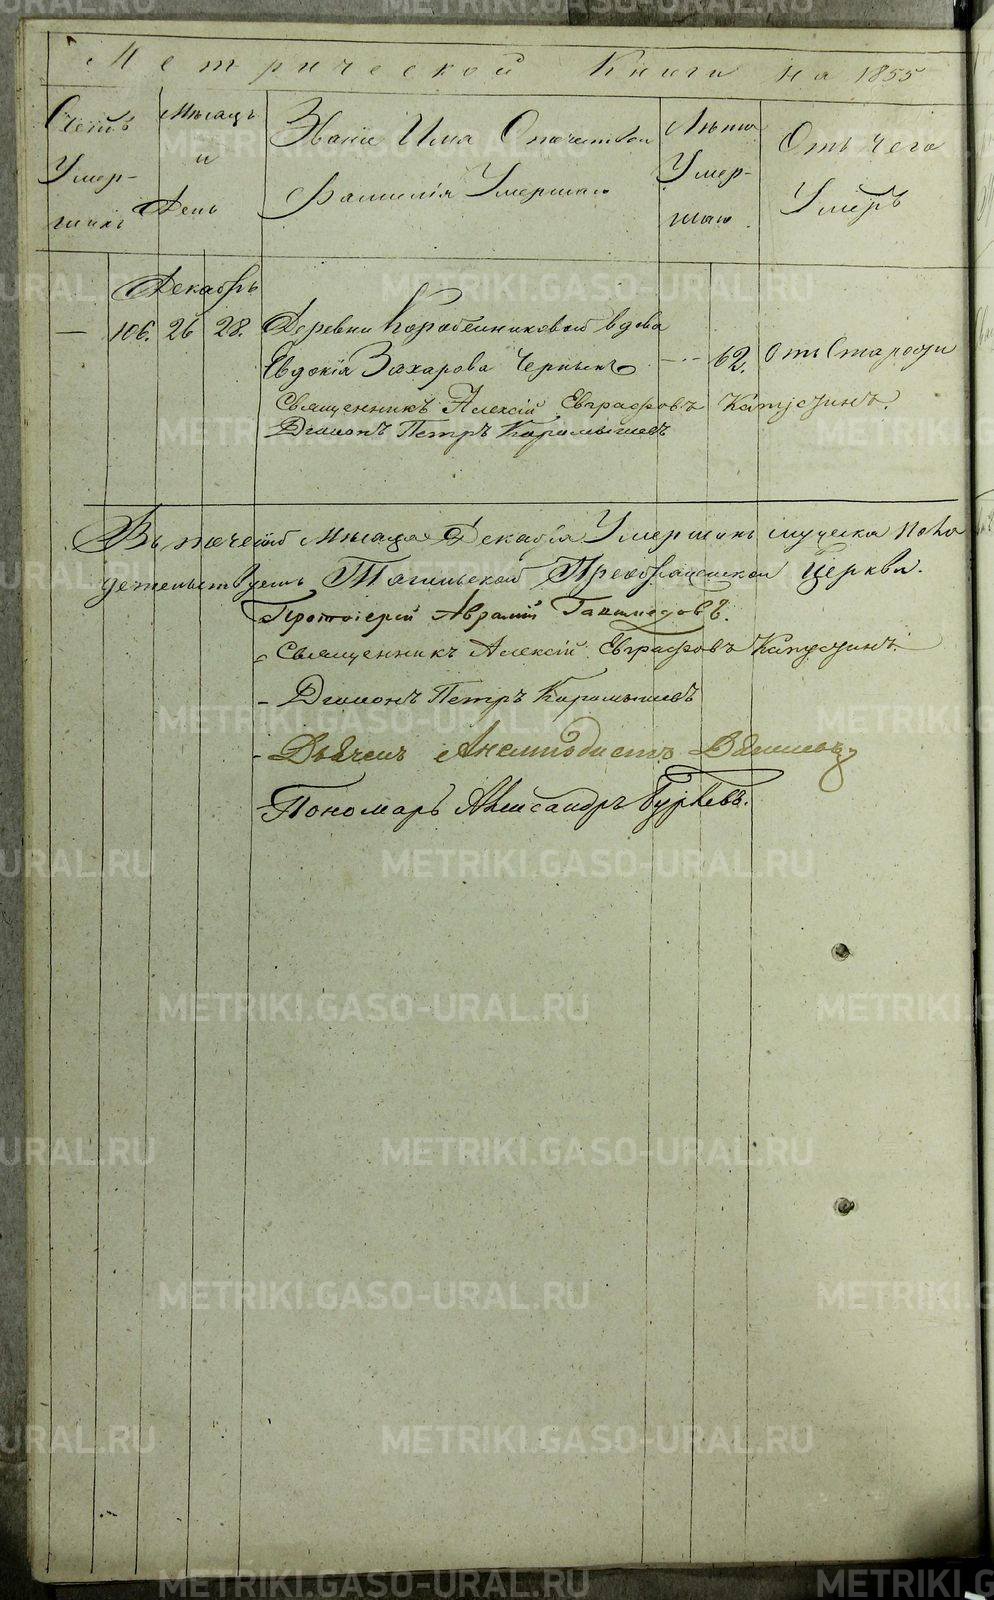 Метрической Книги на 1855
Счетъ Умер- шихъ
Мѣсяцъ и День
Званіе Имя Отчество и Фамилія Умершаго
Лѣта Умер- шаго
Отъ чего Умеръ
Декабрь
— 106. 26 28. Деревни Коробейниковой вдова
Евдокія Захарова Черныхъ — 62. отъ Старости
Священникъ Алексій Евграфовъ Капустинъ.
Діаконъ Петръ Карамышевъ
Въ теченіи мѣсяца Декабря Умершихъ мужеска пола
Тагильской Преображенской Церкви.
Протоіерей Аврамій Ганимедовъ.
Священникъ Алексій Евграфовъ Капустинъ.
- Діаконъ Петръ Карамышевъ
- Дьячекъ Анемподистъ
- Пономарь Александръ Гурьевъ.
METRIKI.GASO-URAL.RU